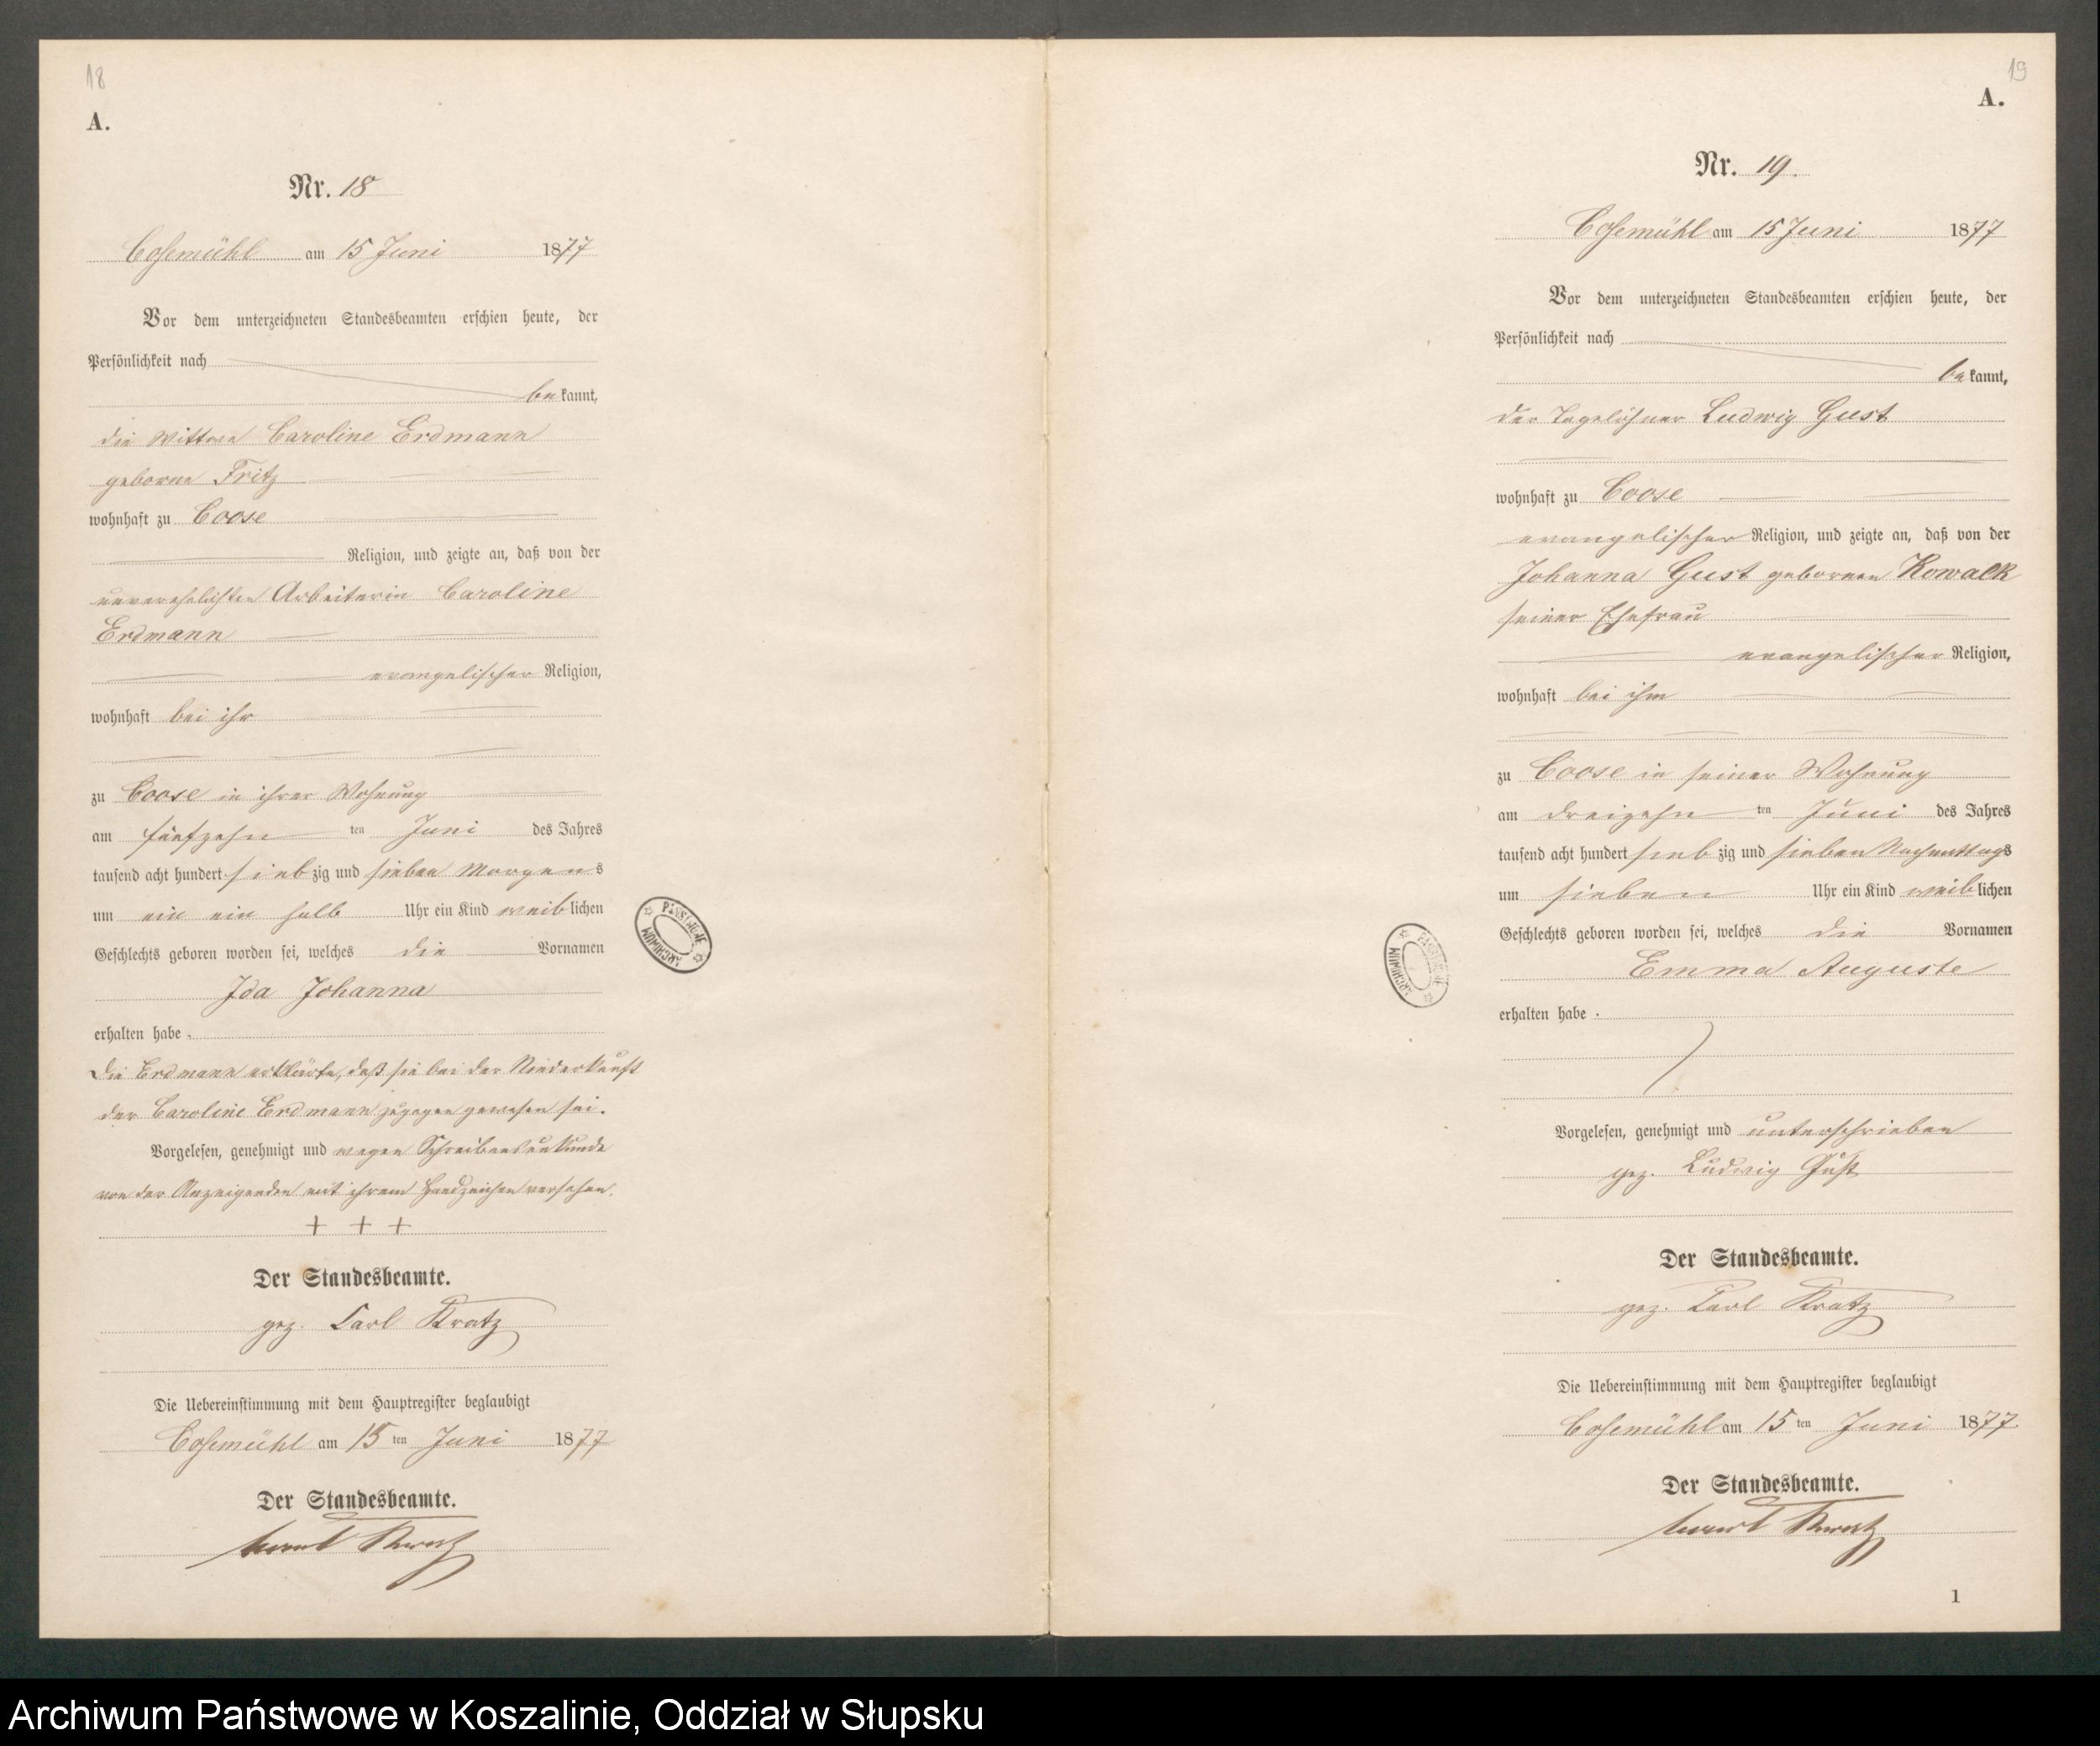 18
A.
Nr. 18
Cosemühl am 15 Juni 1877
Vor dem unterzeichneten Standesbeamten erschien heute, der
Persönlichkeit nach
bekannt,
die Wittwe Caroline Erdmann
geborne Fritz
wohnhaft zu Coose
Religion, und zeigte an, daß von der
unverehelichten Arbeiterin Caroline
Erdmann
evangelischer Religion,
wohnhaft bei ihr
zu Coose in ihrer Wohnung
am fünfzehn ten Juni des Jahres
tausend acht hundert siebzig und sieben Morgens
um ein ein halb Uhr ein Kind weiblichen
Geschlechts geboren worden sei, welches die Vornamen
Ida Johanna
erhalten habe.
Die Erdmann erklärte, daß sie bei der Niederkunft
der Caroline Erdmann zugegen gewesen sei.
Vorgelesen, genehmigt und wegen Schreibensunkunde
von der Anzeigenden mit ihrem Handzeichen versehen.
+ + +
Der Standesbeamte.
gez. Carl Kratz
Die Uebereinstimmung mit dem Hauptregister beglaubigt
Cosemühl am 15 ten Juni 1877
Der Standesbeamte.
Carl Kratz
ARCHIWUM PAŃSTWOWE
19
A.
Nr. 19.
Cosemühl am 15 Juni 1877
Vor dem unterzeichneten Standesbeamten erschien heute, der
Persönlichkeit nach
bekannt,
der Tagelöhner Ludwig Gust
wohnhaft zu Coose
evangelischer Religion, und zeigte an, daß von der
Johanna Gust gebornen Kowalk
seiner Ehefrau
evangelischer Religion,
wohnhaft bei ihm
zu Coose in seiner Wohnung
am dreizehn ten Juni des Jahres
tausend acht hundert siebzig und sieben Nachmittags
um sieben Uhr ein Kind weiblichen
Geschlechts geboren worden sei, welches die Vornamen
Emma Auguste
erhalten habe.
Vorgelesen, genehmigt und unterschrieben
gez. Ludwig Gust
Der Standesbeamte.
gez. Carl Kratz
Die Uebereinstimmung mit dem Hauptregister beglaubigt
Cosemühl am 15 ten Juni 1877
Der Standesbeamte.
Carl Kratz
1
ARCHIWUM PAŃSTWOWE
Archiwum Państwowe w Koszalinie, Oddział w Słupsku